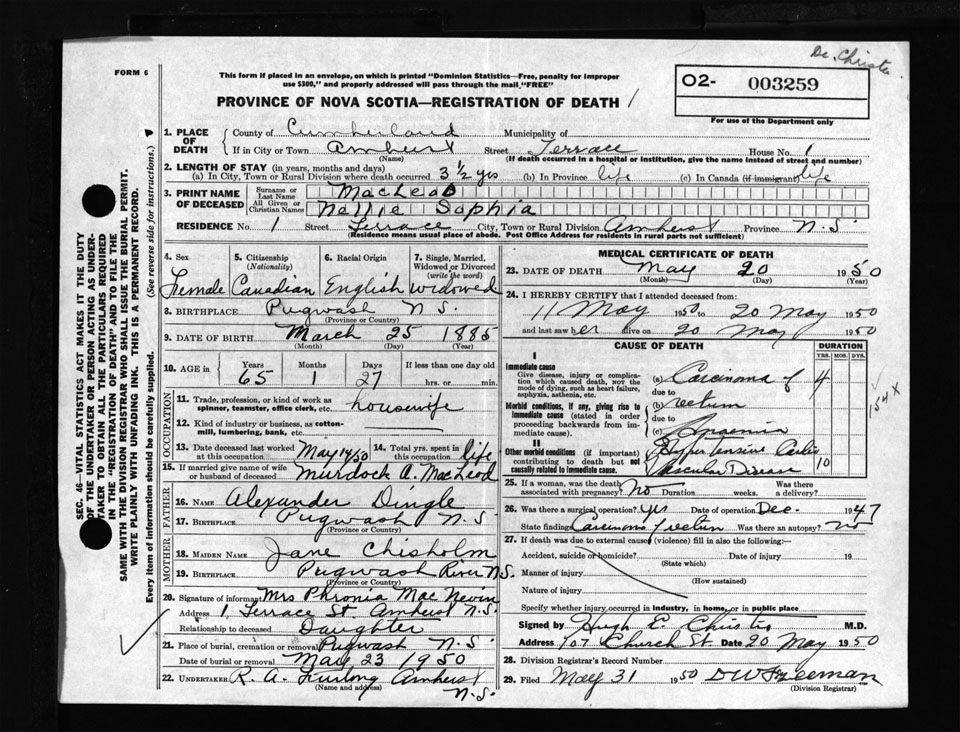 Dr. Christie
FORM 6
This form if placed in an envelope, on which is printed "Dominion Statistics—Free, penalty for improper
use $300," and properly addressed will pass through the mail "FREE"
PROVINCE OF NOVA SCOTIA—REGISTRATION OF DEATH
O2- 003259
For use of the Department only
1. PLACE OF DEATH County of Cumberland Municipality of
If in City or Town Amherst Street Terrace House No. 1
(Name) (If death occurred in a hospital or institution, give the name instead of street and number)
2. LENGTH OF STAY (in years, months and days)
(a) In City, Town or Rural Division where death occurred 3 1/2 yrs (b) In Province life (c) In Canada (if immigrant) life
3. PRINT NAME OF DECEASED Surname or Last Name MacLeod
All Given or Christian Names Nellie Sophia
RESIDENCE No. 1 Street Terrace City, Town or Rural Division Amherst Province N.S
(Residence means usual place of abode. Post Office Address for residents in rural parts not sufficient)
4. Sex 5. Citizenship (Nationality) 6. Racial Origin 7. Single, Married, Widowed or Divorced (write the word)
Female Canadian English Widowed
8. BIRTHPLACE Pugwash N S.
(Province or Country)
9. DATE OF BIRTH March 25 1885
(Month) (Day) (Year)
10. AGE in Years Months Days If less than one day old
65 1 27 hrs. or min.
OCCUPATION
11. Trade, profession, or kind of work as spinner, teamster, office clerk, etc. housewife
12. Kind of industry or business, as cotton-mill, lumbering, bank, etc.
13. Date deceased last worked at this occupation May 14/50 14. Total yrs. spent in this occupation life
15. If married give name of wife or husband of deceased Murdock A. MacLeod
FATHER
16. NAME Alexander Dingle
17. BIRTHPLACE Pugwash N.S
(Province or Country)
MOTHER
18. MAIDEN NAME Jane Chisholm
19. BIRTHPLACE Pugwash River N.S.
(Province or Country)
20. Signature of informant Mrs Phronia Mac Nevin
Address 1 Terrace St. Amherst N.S.
Relationship to deceased Daughter
21. Place of burial, cremation or removal Pugwash N.S
Date of burial or removal May 23 1950
22. UNDERTAKER R. A. Furlong Amherst
(Name and address) N.S.
MEDICAL CERTIFICATE OF DEATH
23. DATE OF DEATH May 20 1950
(Month) (Day) (Year)
24. I HEREBY CERTIFY that I attended deceased from:
11 May 1950 to 20 May 1950
and last saw her alive on 20 May 1950
CAUSE OF DEATH DURATION
YRS. MOS. DYS.
I
Immediate cause
Give disease, injury or complication which caused death, NOT the mode of dying, such as heart failure, asphyxia, asthenia, etc.
(a) Carcinoma of 4
due to
Morbid conditions, if any, giving rise to immediate cause (stated in order proceeding backwards from immediate cause).
(b) rectum
due to
(c) Anaemia
II
Other morbid conditions (if important) contributing to death but not causally related to immediate cause.
Hypertensive Cardio
Vascular Disease 10
154 X
25. If a woman, was the death associated with pregnancy? No Duration weeks. Was there a delivery?
26. Was there a surgical operation? Yes Date of operation Dec. 1947
State finding Carcinoma of rectum Was there an autopsy? no
27. If death was due to external cause (violence) fill in also the following:—
Accident, suicide or homicide? Date of injury 19
(State which)
Manner of injury
(How sustained)
Nature of injury
Specify whether injury occurred in industry, in home, or in public place
Signed by Hugh E. Christie M.D.
Address 107 Church St. Date 20 May 1950
28. Division Registrar's Record Number
29. Filed May 31 1950 D W Freeman
(Division Registrar)
SEC. 46—VITAL STATISTICS ACT MAKES IT THE DUTY
OF THE UNDERTAKER OR PERSON ACTING AS UNDER-
TAKER TO OBTAIN ALL THE PARTICULARS REQUIRED
IN THE "REGISTRATION OF DEATH" AND TO FILE THE
SAME WITH THE DIVISION REGISTRAR WHO SHALL ISSUE THE BURIAL PERMIT.
WRITE PLAINLY WITH UNFADING INK. THIS IS A PERMANENT RECORD.
Every item of information should be carefully supplied. (See reverse side for instructions.)